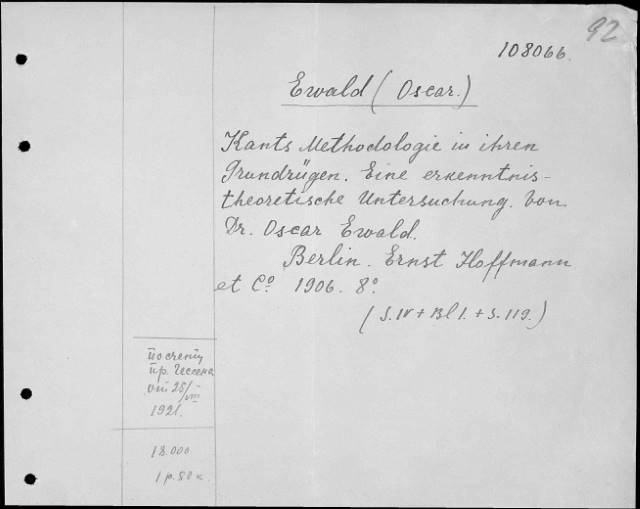 92
108066.
Ewald (Oscar.)
Kants Methodologie in ihren
Grundzügen. Eine erkenntnis-
theoretische Untersuchung. Von
Dr. Oscar Ewald.
Berlin. Ernst Hoffmann
et Cº 1906. 8º.
(S. IV + Bl 1. + S. 119.)
по счету
пр. Гессена
от 25/VIII
1921.
18.000
1 р. 50 к.